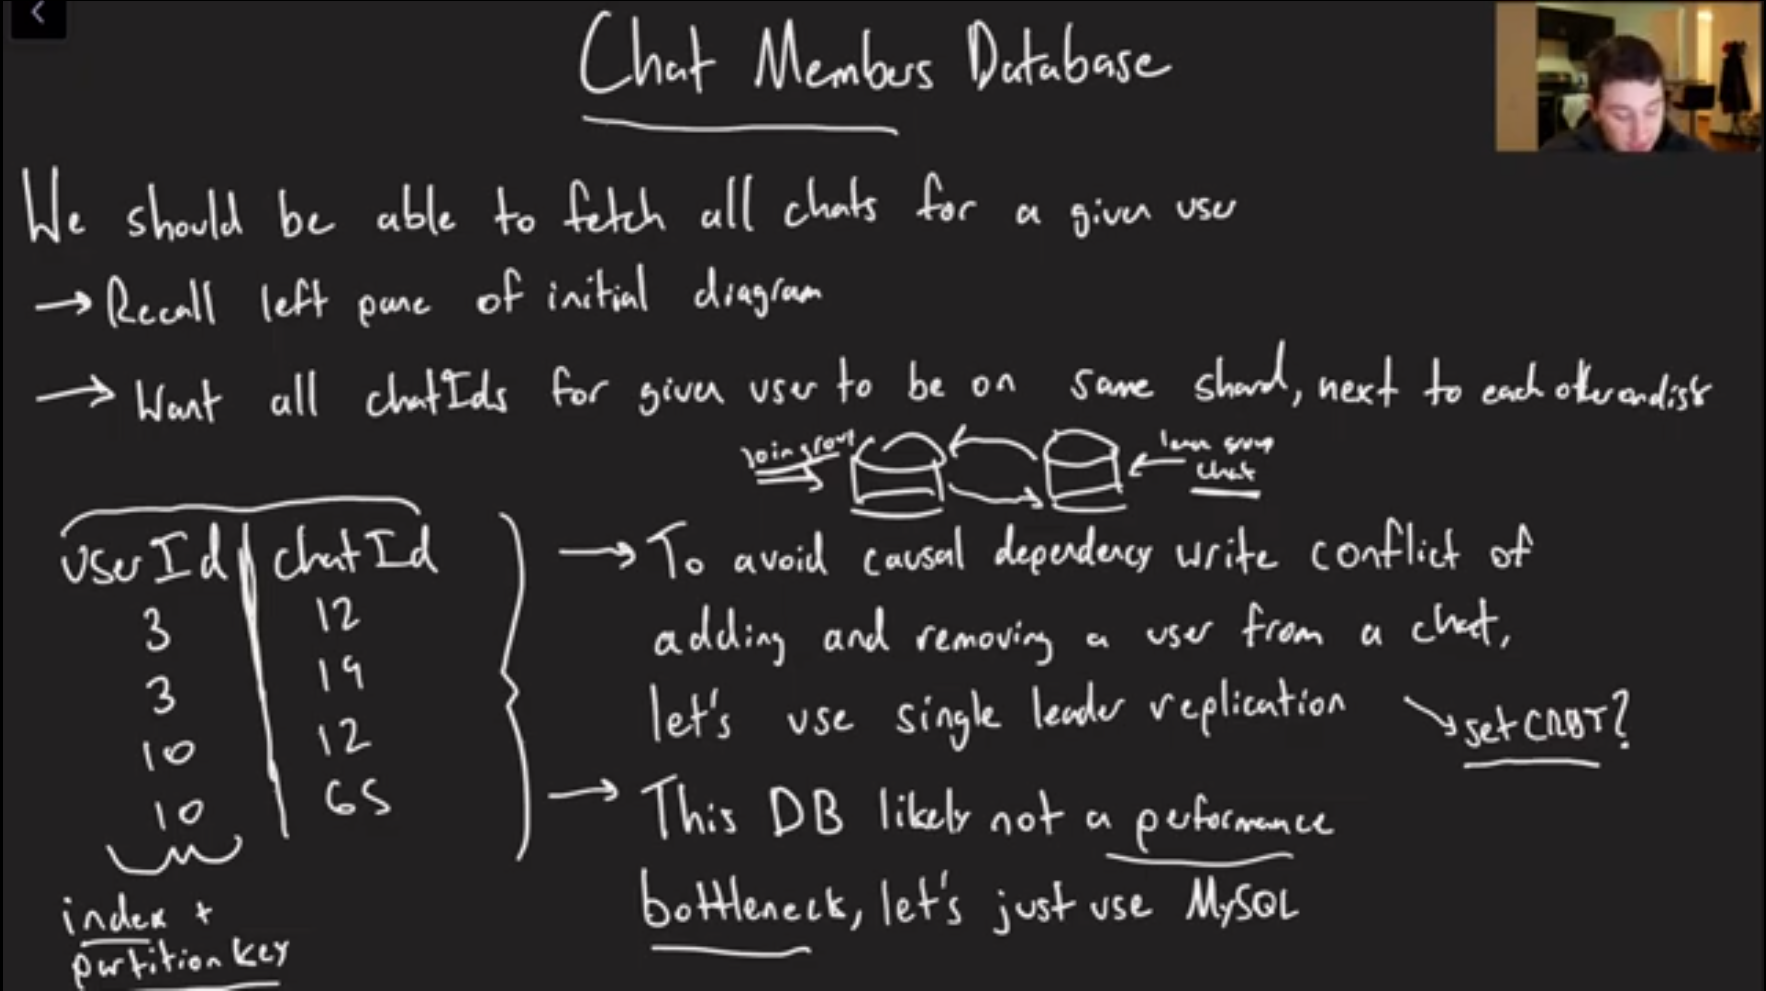 Chat Members Database
We should be able to fetch all chats for a given user
→ Recall left pane of initial diagram
→ Want all chatIds for given user to be on same shard, next to each other on disk
join group
leave group
chat
userId | chatId
3 | 12
3 | 19
10 | 12
10 | 65
index +
partition key
→ To avoid causal dependency write conflict of
adding and removing a user from a chat,
let's use single leader replication
set CRDT?
→ This DB likely not a performance
bottleneck, let's just use MySQL